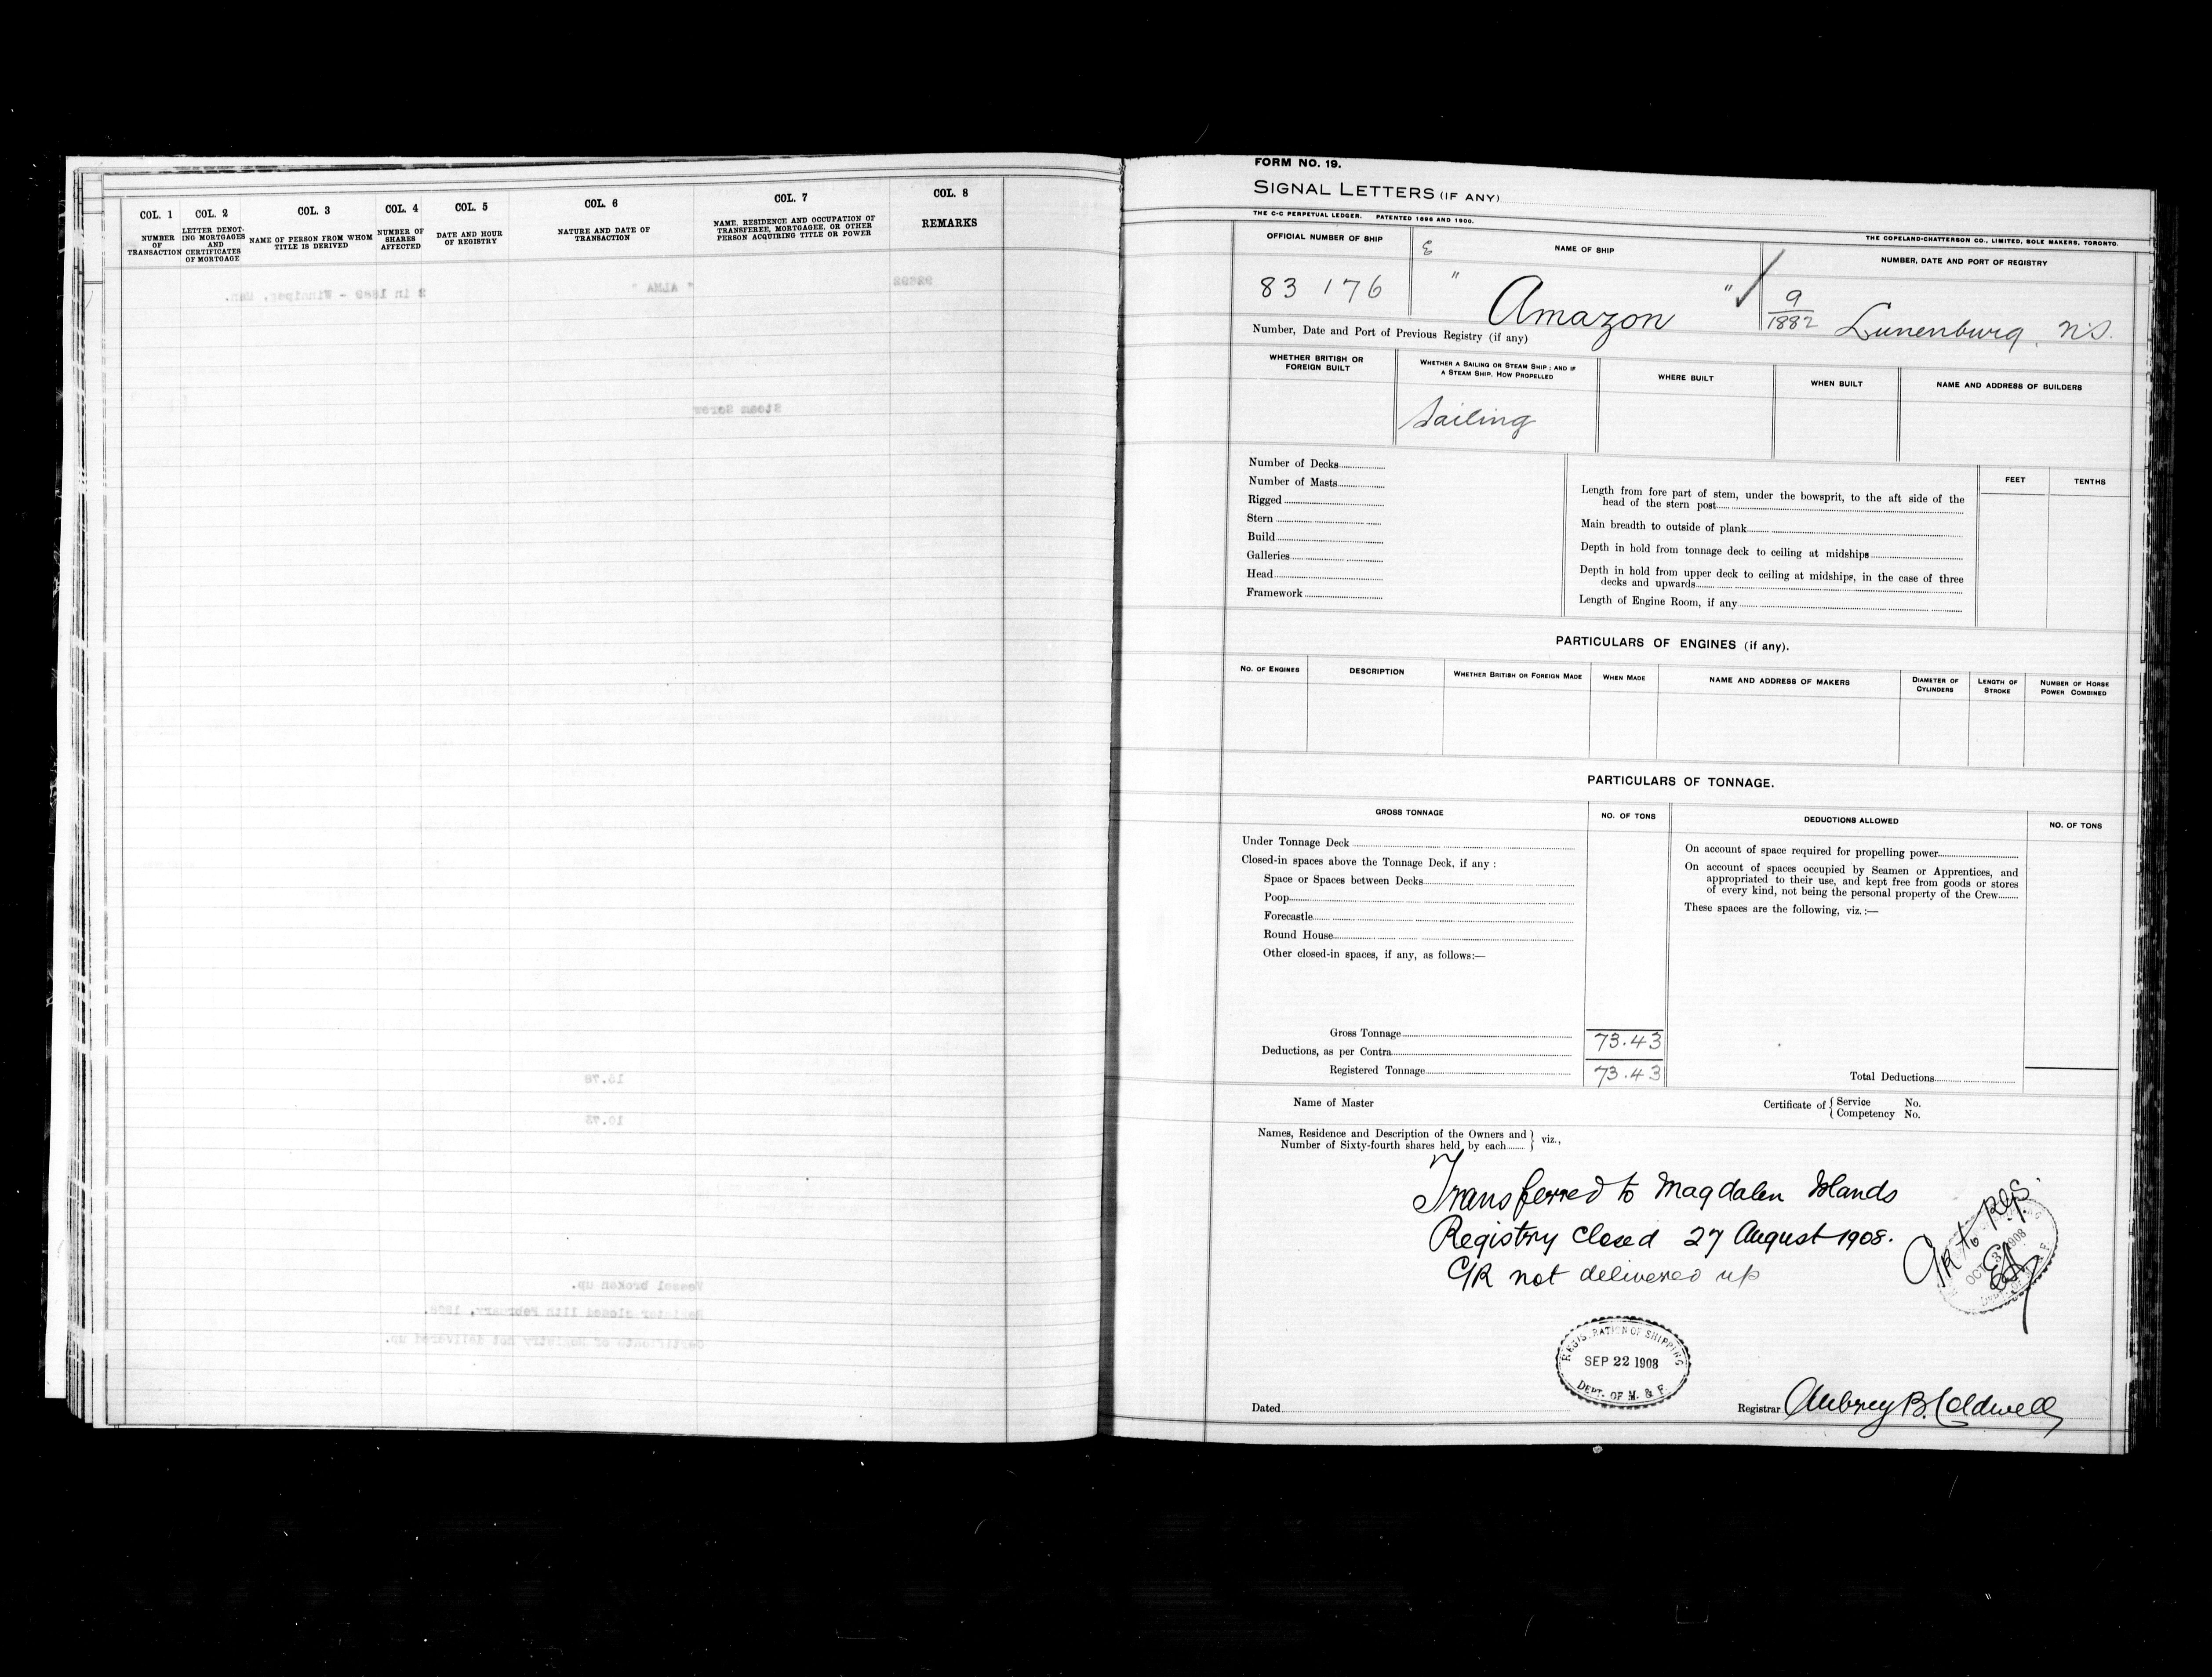 COL. 1
NUMBER OF TRANSACTION
COL. 2
LETTER DENOTING MORTGAGES AND CERTIFICATES OF MORTGAGE
COL. 3
NAME OF PERSON FROM WHOM TITLE IS DERIVED
COL. 4
NUMBER OF SHARES AFFECTED
COL. 5
DATE AND HOUR OF REGISTRY
COL. 6
NATURE AND DATE OF TRANSACTION
COL. 7
NAME, RESIDENCE AND OCCUPATION OF TRANSFEREE, MORTGAGEE, OR OTHER PERSON ACQUIRING TITLE OR POWER
COL. 8
REMARKS
92892
" ALMA "
2 in 1889 - Winnipeg, Man.
Steam Screw
15.78
10.73
Vessel broken up.
Register closed 11th February, 1908.
Certificate of Registry not delivered up.
FORM NO. 19.
SIGNAL LETTERS (IF ANY)
THE C-C PERPETUAL LEDGER. PATENTED 1896 AND 1900.
THE COPELAND-CHATTERSON CO., LIMITED, SOLE MAKERS, TORONTO.
OFFICIAL NUMBER OF SHIP
NAME OF SHIP
NUMBER, DATE AND PORT OF REGISTRY
83 176
" Amazon "
9/1882 Lunenburg, N.S.
Number, Date and Port of Previous Registry (if any)
WHETHER BRITISH OR FOREIGN BUILT
WHETHER A SAILING OR STEAM SHIP; AND IF A STEAM SHIP, HOW PROPELLED
WHERE BUILT
WHEN BUILT
NAME AND ADDRESS OF BUILDERS
Sailing
Number of Decks
Number of Masts
Rigged
Stern
Build
Galleries
Head
Framework
FEET
TENTHS
Length from fore part of stem, under the bowsprit, to the aft side of the
head of the stern post
Main breadth to outside of plank
Depth in hold from tonnage deck to ceiling at midships
Depth in hold from upper deck to ceiling at midships, in the case of three
decks and upwards
Length of Engine Room, if any
PARTICULARS OF ENGINES (if any).
NO. OF ENGINES
DESCRIPTION
WHETHER BRITISH OR FOREIGN MADE
WHEN MADE
NAME AND ADDRESS OF MAKERS
DIAMETER OF CYLINDERS
LENGTH OF STROKE
NUMBER OF HORSE POWER COMBINED
PARTICULARS OF TONNAGE.
GROSS TONNAGE
NO. OF TONS
DEDUCTIONS ALLOWED
NO. OF TONS
Under Tonnage Deck
Closed-in spaces above the Tonnage Deck, if any :
Space or Spaces between Decks
Poop
Forecastle
Round House
Other closed-in spaces, if any, as follows:—
On account of space required for propelling power
On account of spaces occupied by Seamen or Apprentices, and
appropriated to their use, and kept free from goods or stores
of every kind, not being the personal property of the Crew
These spaces are the following, viz.:—
Gross Tonnage 73.43
Deductions, as per Contra
Registered Tonnage 73.43
Total Deductions
Name of Master
Certificate of { Service No.
Competency No.
Names, Residence and Description of the Owners and
Number of Sixty-fourth shares held by each } viz.,
Transferred to Magdalen Islands
Registry Closed 27 August 1908.
C/R not delivered up
C/R to Reg.
OCT 3 1908
REGISTRATION OF SHIPPING
SEP 22 1908
DEPT. OF M. & F.
Dated
Registrar Aubrey B. Caldwell